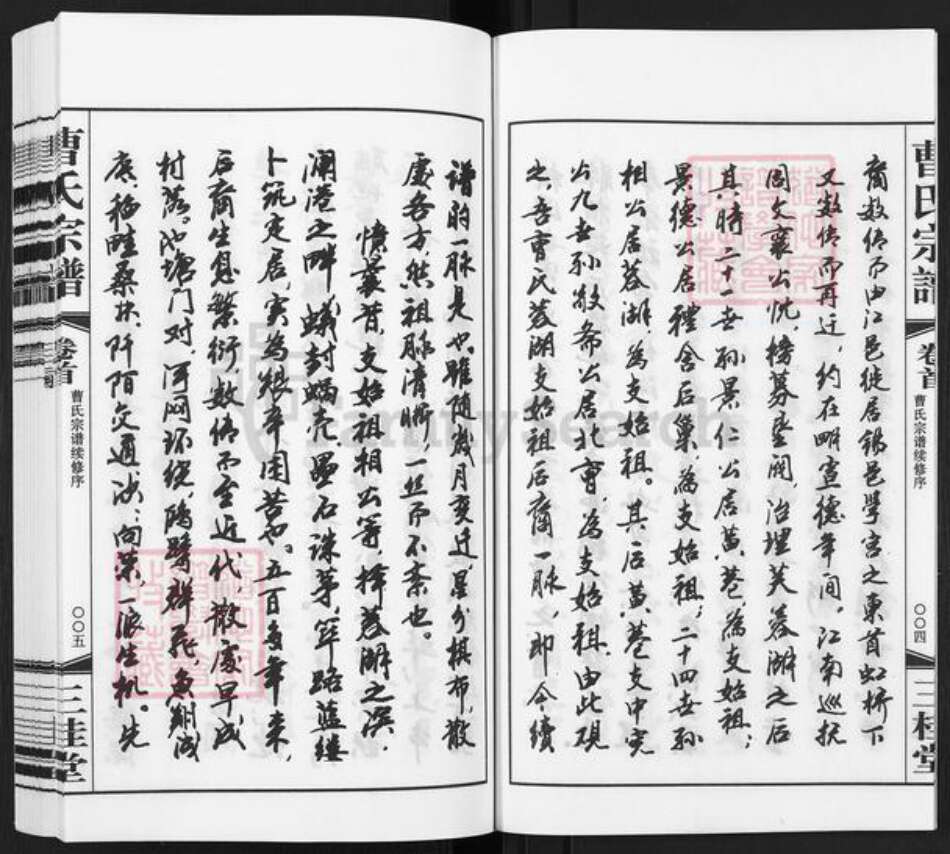 曹氏宗谱
卷首
曹氏宗谱续修序
〇〇四
三桂堂
裔数传而由江邑徙居锡邑学宫之东首虹桥下
又数传而再迁，约在明宣德年间。江南巡抚
周文襄公忱，榜募垦阔，治埋芙蓉湖之后
其时二十一世孙景仁公居黄巷，为支始祖；
景德公居礼舍后巢，为支始祖；二十四世孙
相公居蓉湖，为支始祖。其后黄巷支中完
公九世孙敬斋公居北曹，为支始祖。由此观
之，吾曹氏蓉湖支始祖后裔一脉，即今续
谱的一脉是也。虽随岁月变迁，星分棋布，散
处各方，然祖脉清晰，一丝而不紊也。
忆曩昔，支始祖相公等，择蓉湖之滨，
澜港之畔，蚁封蜗壳，垒石诛茅，筚路蓝缕
卜筑定居，实为艰辛困苦也。五百多年来，
后裔生息繁衍，数传而至近代，散处早成
村落。池塘门对，河网环绕，鸥鹭群飞，鱼翔浅
底，稻畦桑块，阡陌交通，欣欣向荣，一派生机。先
曹氏宗谱
卷首
曹氏宗谱续修序
〇〇五
三桂堂
FamilySearch